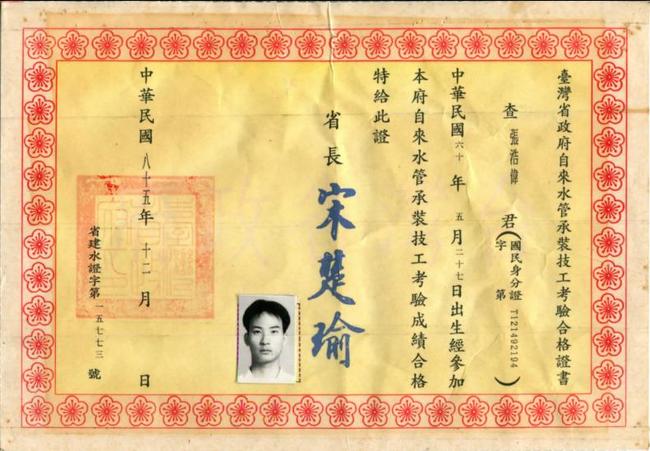 臺灣省政府自來水管承裝技工考驗合格證書
查 張浩偉 君(國民身分證 字第 T121492194)
中華民國 六十 年 五 月 二十七 日出生經參加
本府自來水管承裝技工考驗成績合格
特給此證
省長 宋楚瑜
中華民國 八十五 年 十二 月 日
省建水證字第 一五七七三 號